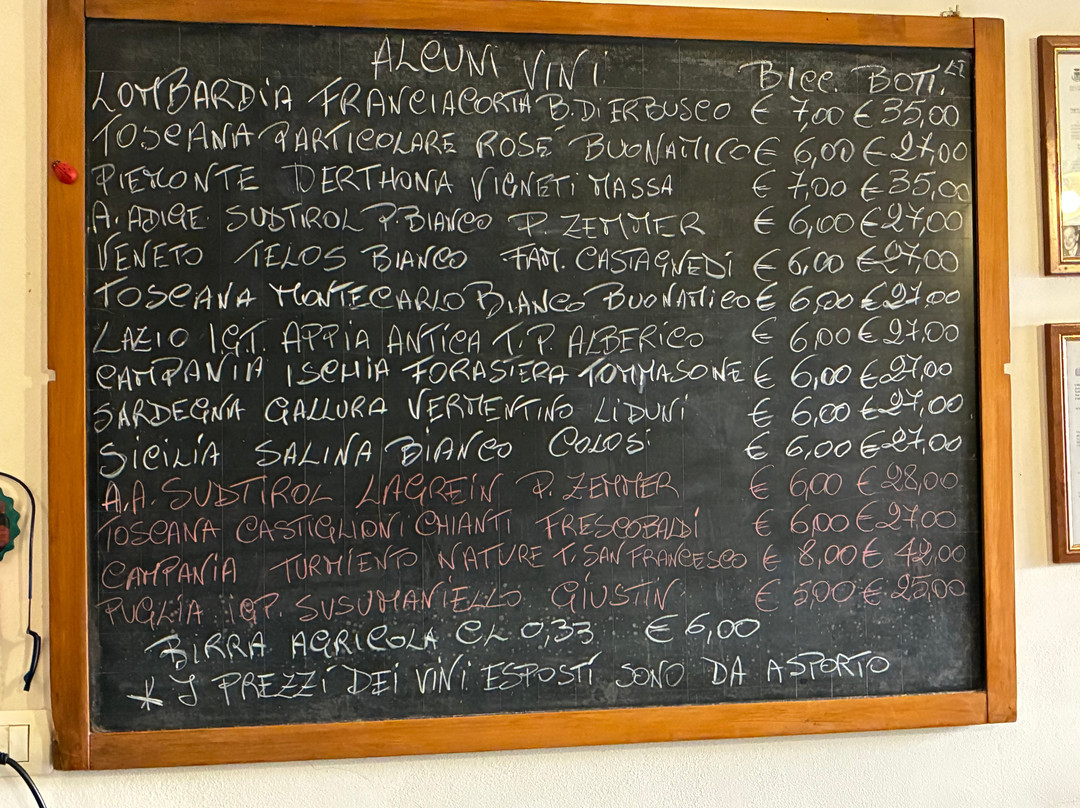 ALCUNI VINI BICC. BOTT.
LOMBARDIA FRANCIACORTA B. DI ERBUSCO € 7,00 € 35,00
TOSCANA PARTICOLARE ROSÉ BUONAMICO € 6,00 € 27,00
PIEMONTE DERTHONA VIGNETI MASSA € 7,00 € 35,00
A. ADIGE SUDTIROL P. BIANCO P. ZEMMER € 6,00 € 27,00
VENETO TELOS BIANCO FAM. CASTAGNEDI € 6,00 € 27,00
TOSCANA MONTECARLO BIANCO BUONAMICO € 6,00 € 27,00
LAZIO I.G.T. APPIA ANTICA T. P. ALBERICO € 6,00 € 27,00
CAMPANIA ISCHIA FORASTERA TOMMASONE € 6,00 € 27,00
SARDEGNA GALLURA VERMENTINO LIDUNI € 6,00 € 27,00
SICILIA SALINA BIANCO COLOSI € 6,00 € 27,00
A.A. SUDTIROL LAGREIN P. ZEMMER € 6,00 € 28,00
TOSCANA CASTIGLIONI CHIANTI FRESCOBALDI € 6,00 € 27,00
CAMPANIA TURMIENTO NATURE T. SAN FRANCESCO € 8,00 € 42,00
PUGLIA IGP. SUSUMANIELLO GIUSTIN € 5,00 € 25,00
BIRRA AGRICOLA CL 0,33 € 6,00
* I PREZZI DEI VINI ESPOSTI SONO DA ASPORTO